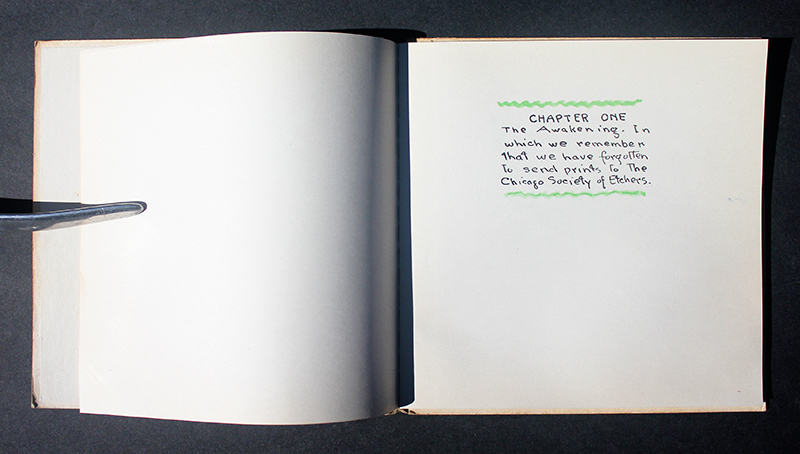 CHAPTER ONE
The Awakening. In
which we remember
that we have forgotten
to send prints to The
Chicago Society of Etchers.